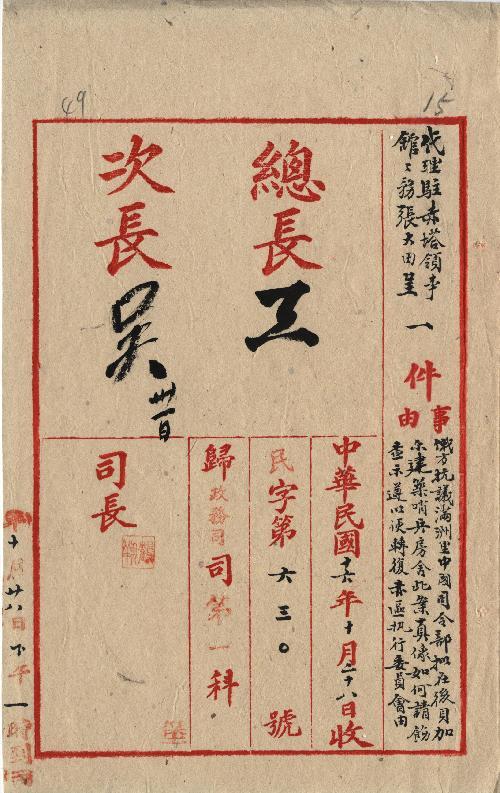 49
15
代理駐赤塔領事
館〻務張大田呈
一件
事由
俄方抗議滿洲里中國司令部擬在後貝加
尔建築哨兵房舍此案真像如何請飭
查示遵以便轉復赤區执行委員會由
總長
王
次長
吳
卅一日
中華民國十六年十月二十八日收
民字第六三〇號
歸政務司司第一科
司長
十月廿八日下午一時到